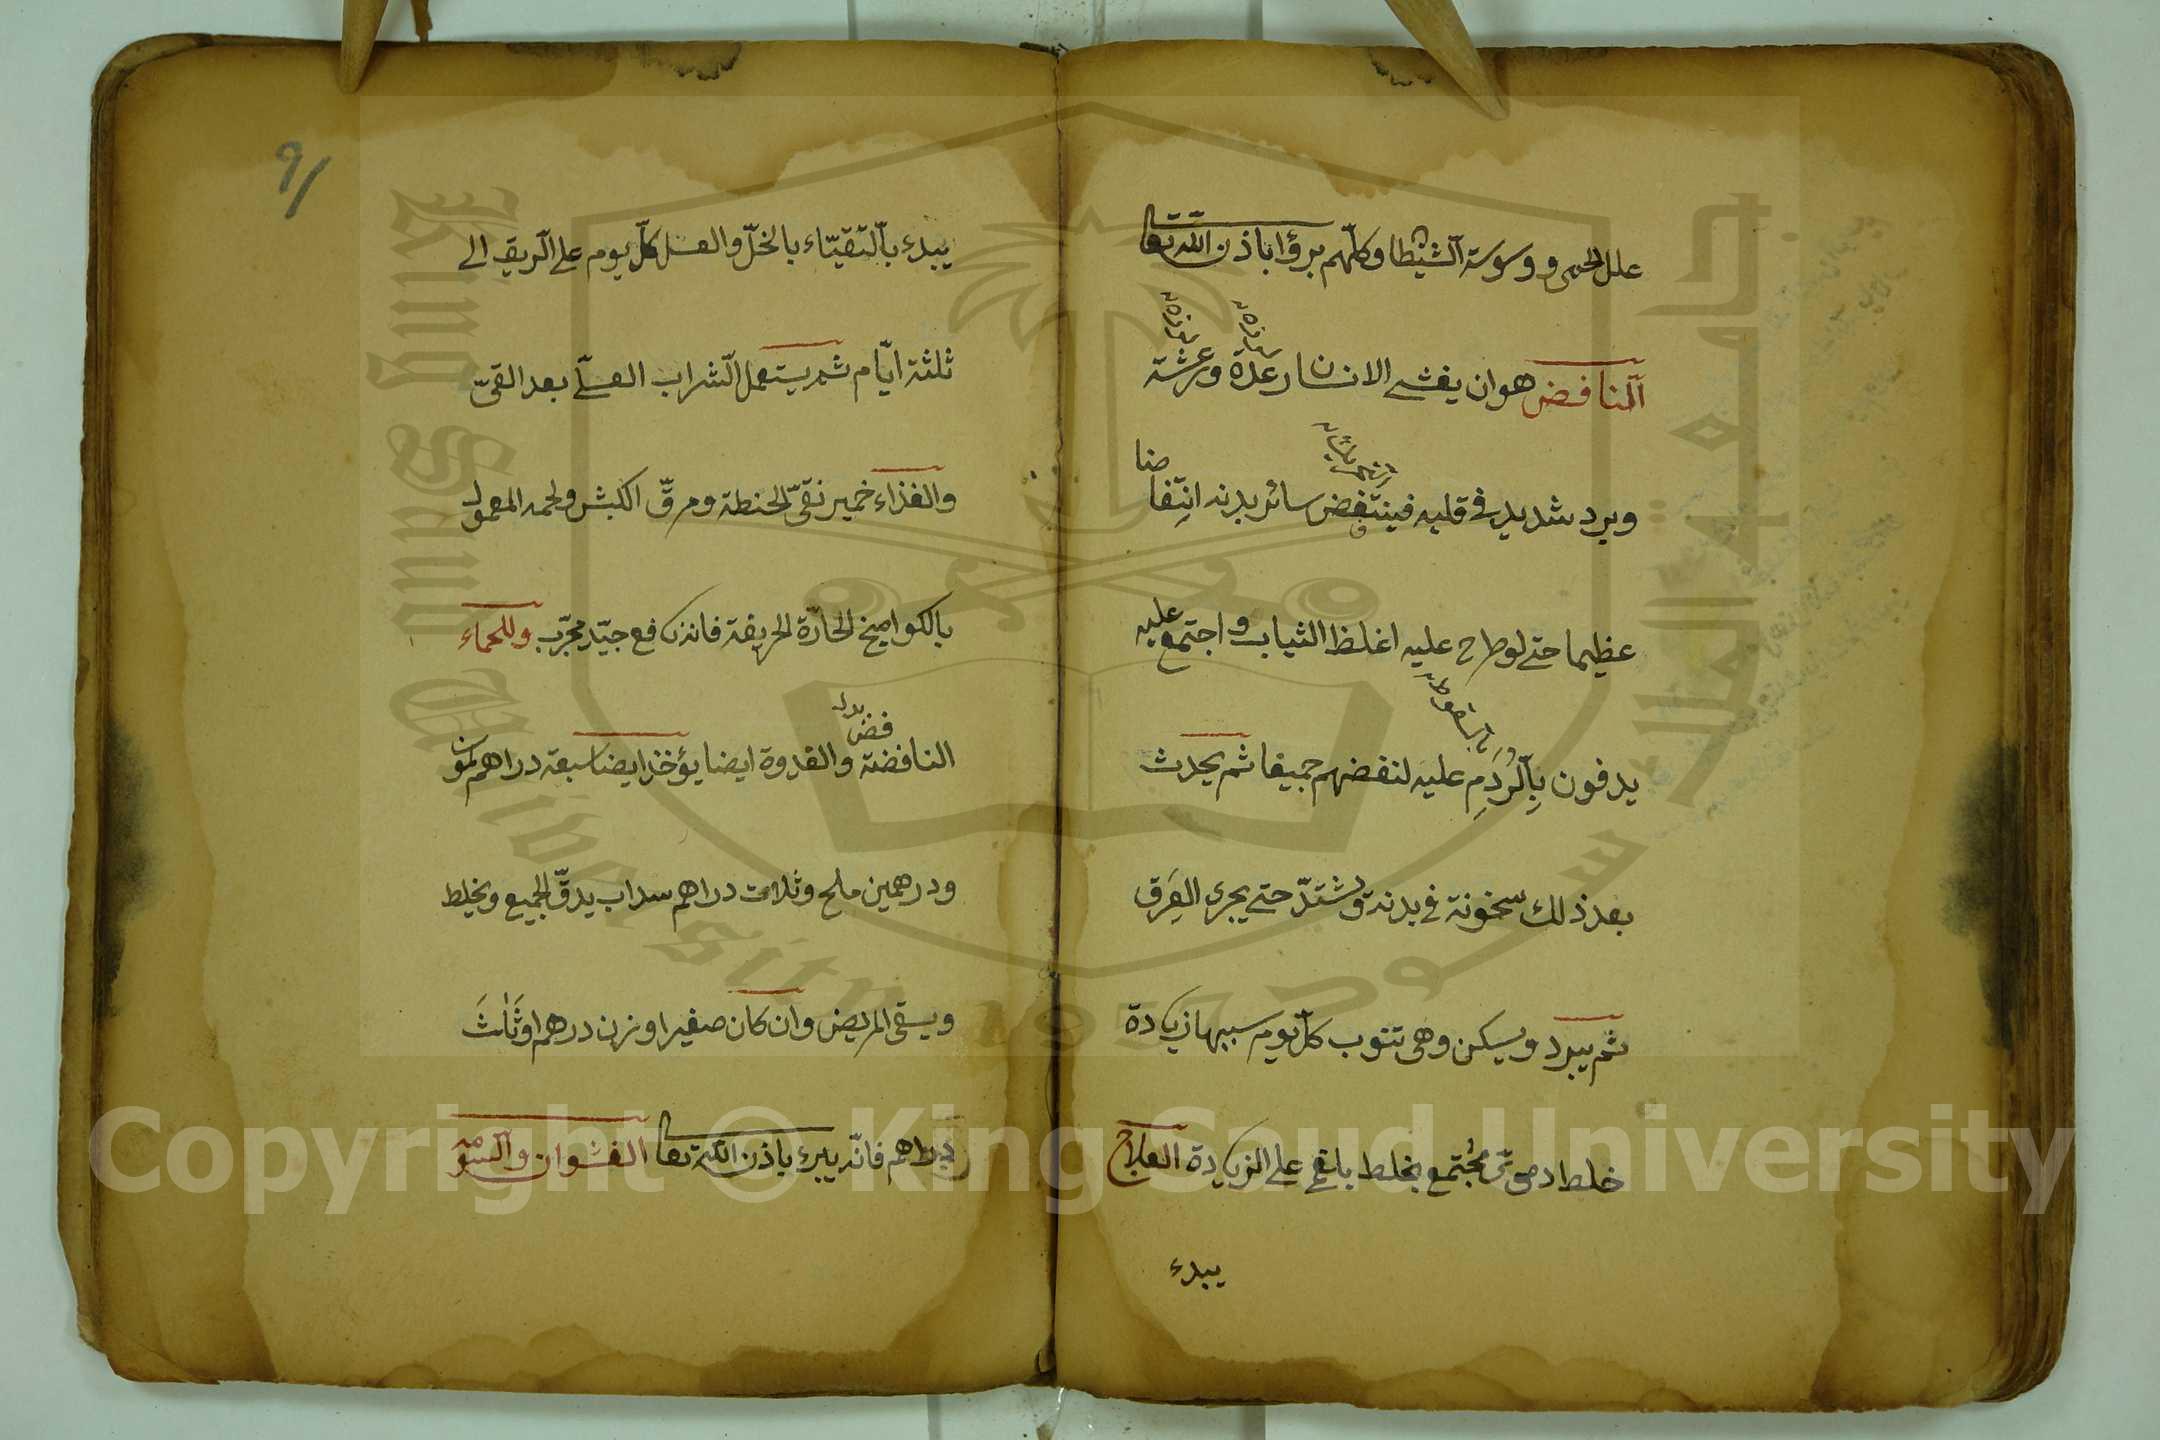 علل الحمى ووسوسة الشيطا وكلهم برؤا باذن الله تعا
النافض هوان يغشى الانسان رعدة ورعشة
وبرد شديد في قلبه فينتفض سائر بدنه انتفا
ضا
عظيما حتى لو طرح عليه اغلظ الثياب واجتمع عليه
يدفون بالردم عليه لنفضهم جميعا ثم يحدث
بعد ذلك سخونة في بدنه وتشتد حتى يجرى العرق
ثم يبرد ويسكن وهى تنوب كل يوم سببها زيادة
خلط مجتمع بخلط على الزيادة العلاج
يبدء
٩١
يبدء بالتقيّاء بالخلّ والعسل كلّ يوم على الريق الى
ثلثة ايّام ثم يستعمل الشراب العسلى بعد القىّ
والغذاء خمير نقىّ الحنطة ومرقّ الكبش ولحمه المعمول
بالكواميخ الحارّة الحريفة فانه نافع جيّد مجرّب وللحماء
النافضة والغدوة ايضا يؤخذ ايضا سبعة دراهم كمون
فض بدل
ودرهمين ملح وثلاث دراهم سداب يدقّ الجميع ويخلط
ويسقى المريض وان كان صغيرا وزن درهم او ثلث
دراهم فانّه يبرء باذن الله تعا الغشوان والسو